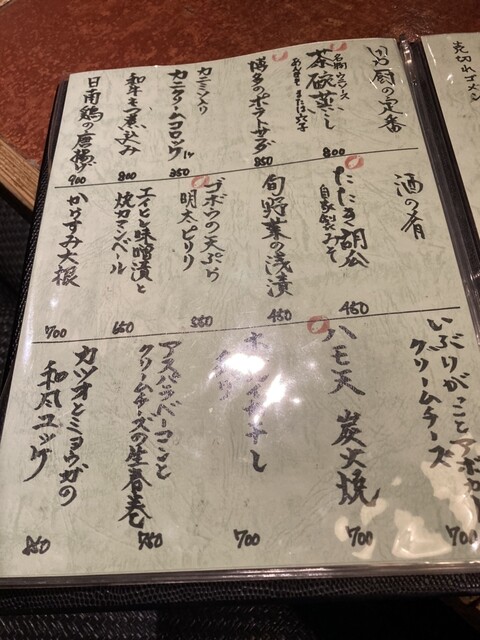 売切れゴメン
厨の定番
名物ウニソース
茶碗蒸し
あんかけ または 穴子
800
博多のポテトサラダ
850
カニミソ入り
カニクリームコロッケ
350
和牛もつ煮込み
800
日南鶏の唐揚げ
900
酒の肴
たたき胡瓜
自家製みそ
450
旬野菜の浅漬
450
ゴボウの天ぷら
明太ピリリ
550
エイヒレ味噌漬と
焼カマンベール
650
からすみ大根
700
いぶりがことアボカド
クリームチーズ
700
ハモ天 炭火焼
700
700
アスパラベーコンと
クリームチーズの生春巻
750
カツオとミョウガの
和風ユッケ
850